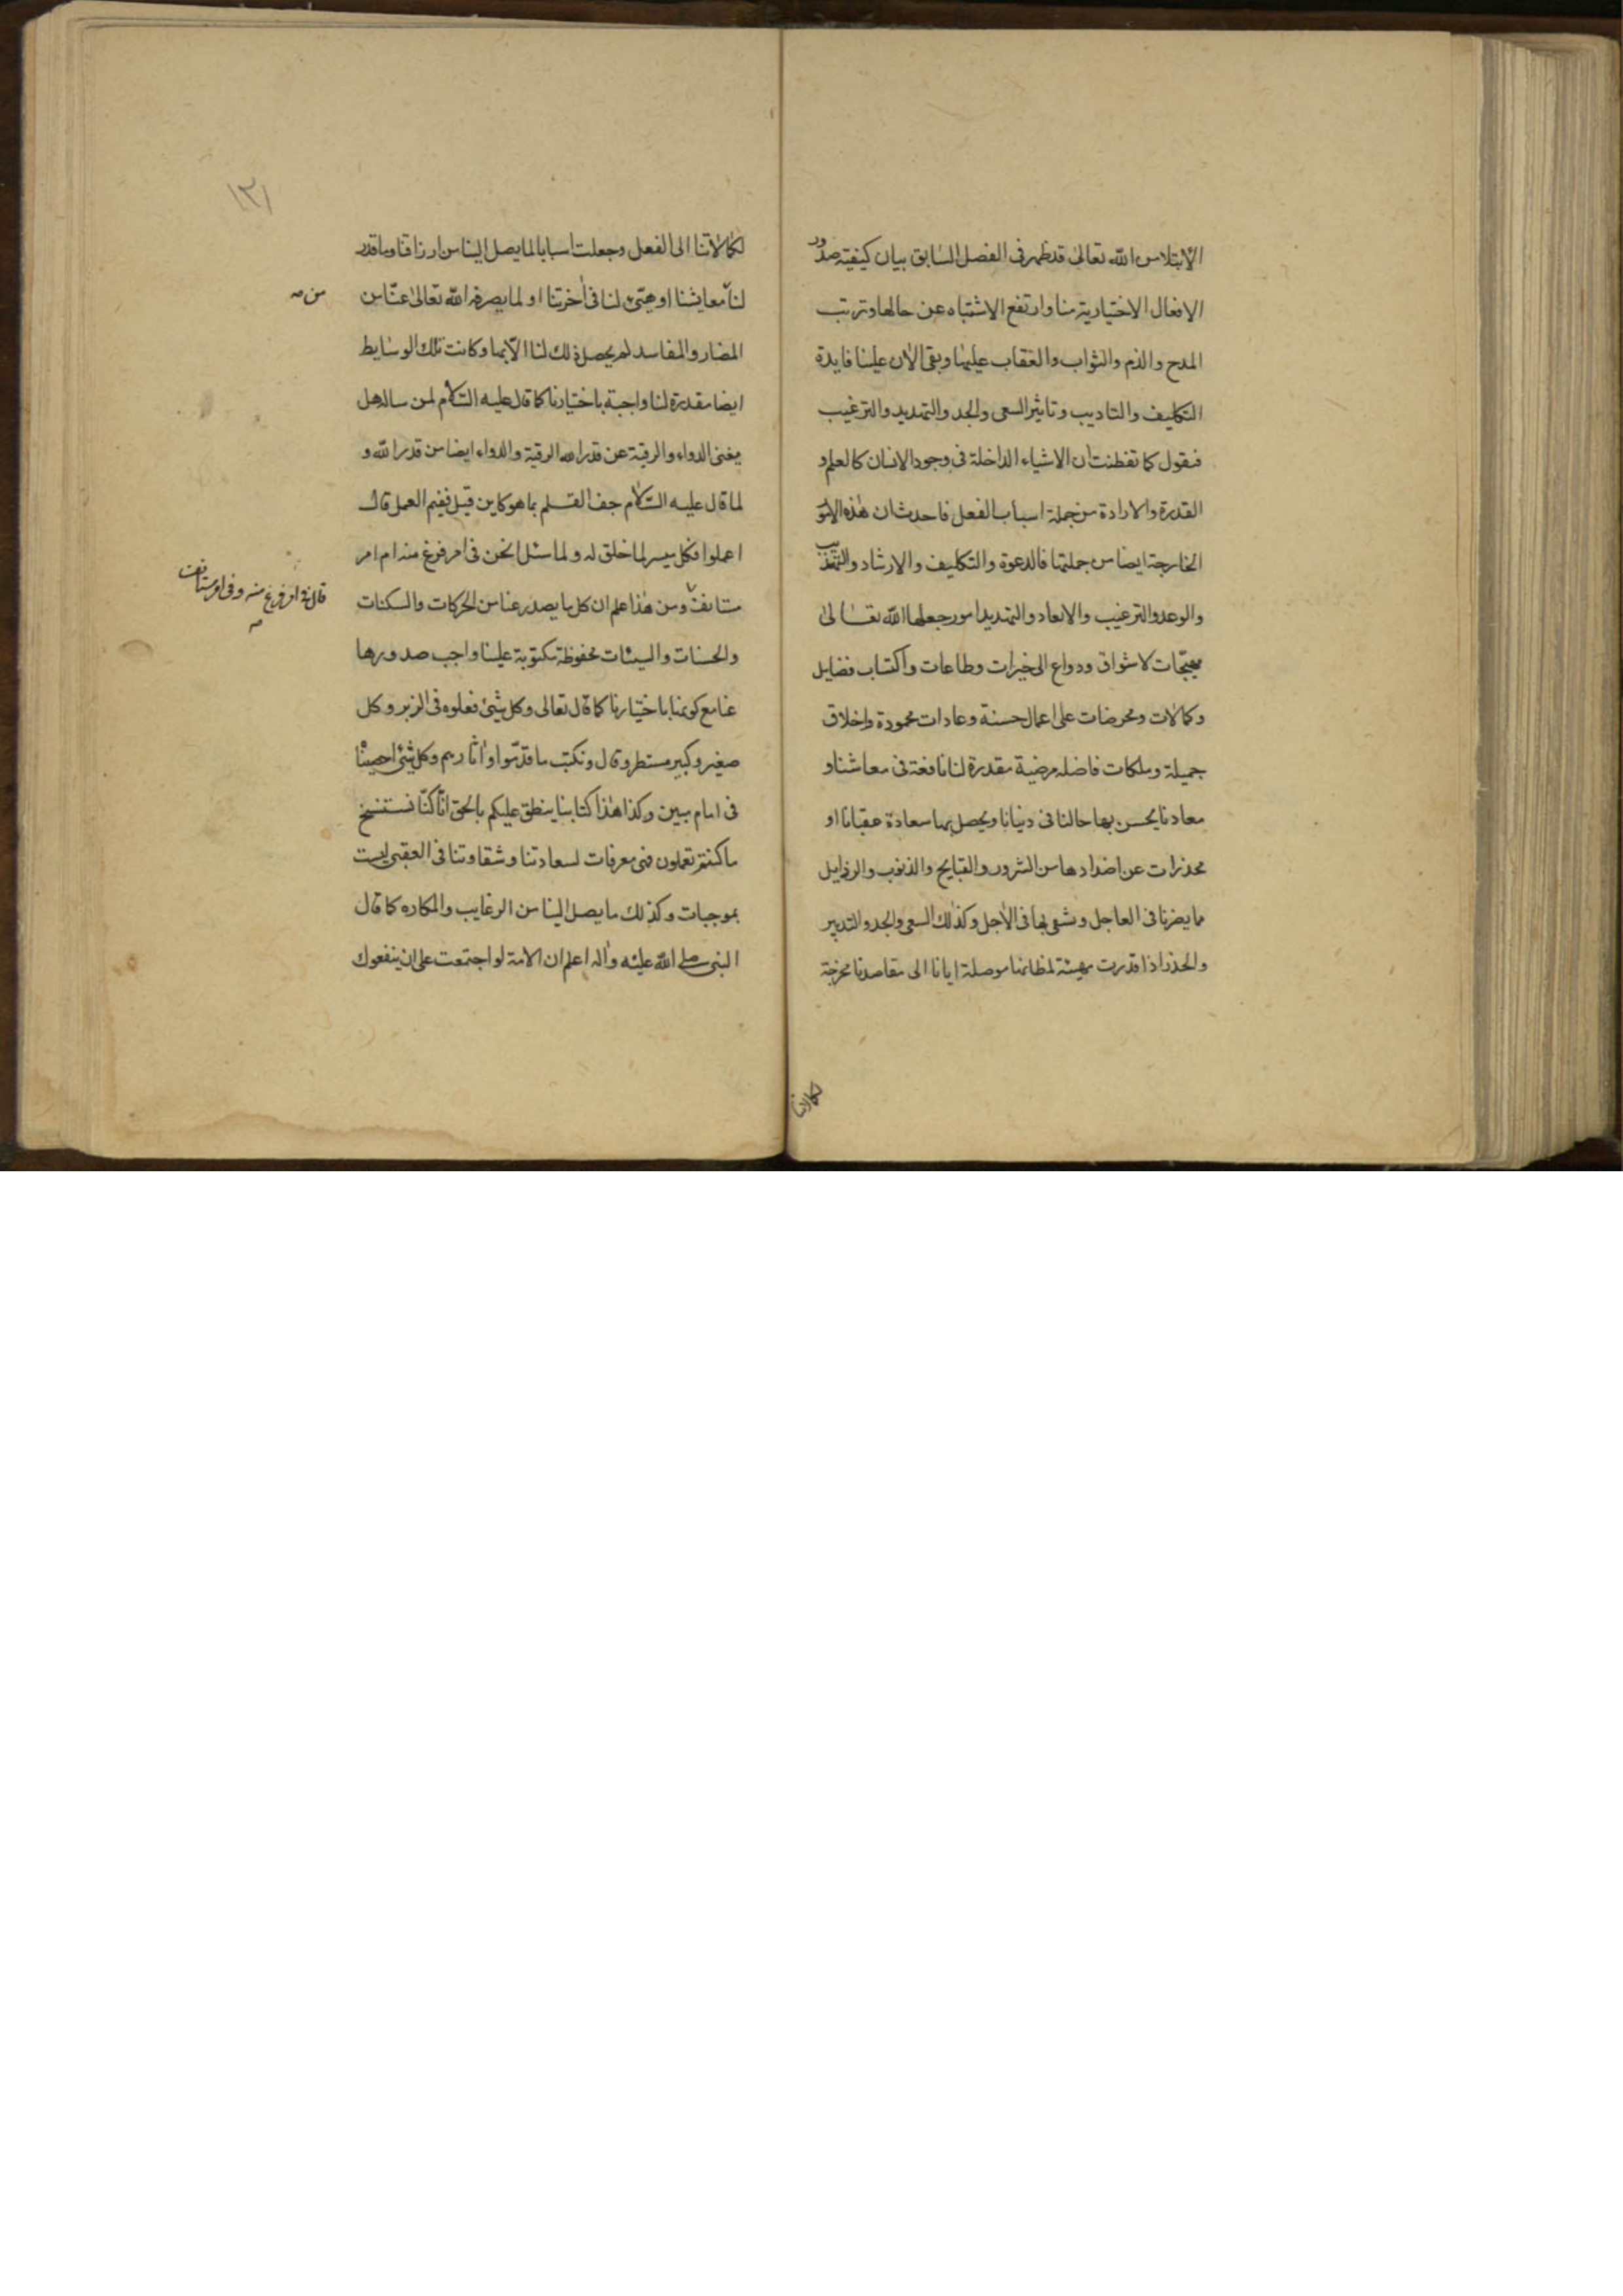 الابتلاء من الله تعالى قد ظهر فى الفصل السابق بيان كيفية صدور
الافعال الاختيارية منا وارتفع الاشتباه عن حالها وترتب
المدح والذم والثواب والعقاب عليها وبقى الآن علينا فايدة
التكليف والتاديب وتاثير السعى والجد والتهديد والترغيب
فنقول كما تفطنت ان الاشياء الداخلة فى وجود الانسان كالعلم و
القدرة والارادة من جملة اسباب الفعل فاحدث ان هذه الامور
الخارجة ايضا من جملتها فالدعوة والتكليف والارشاد والتهذيب
والوعد والترغيب والايعاد والتهديد امور جعلها الله تعالى
مهيجات لاشواق ودواع الى خيرات وطاعات واكتساب فضايل
وكمالات ومحرضات على اعمال حسنة وعادات محمودة واخلاق
جميلة وملكات فاضله مرضية مقدرة لنا نافعة فى معاشنا و
معادنا يحسن بها حالنا فى دنيانا ويحصل بها سعادة عقبانا او
محذرات عن اضدادها من الشرور والقبايح والذنوب والرذايل
مما يضرنا فى العاجل ونشقى بها فى الآجل وكذلك السعى والجد والتدبير
والحذر اذا قدرت مهيئة لمظاننا موصلة ايانا الى مقاصدنا مخرجة
لكمالاتنا
١٣١
لكمالاتنا الى الفعل وجعلت اسبابا لما يصل الينا من ارزاقنا وما قدر
لنا معايشنا او هيئ لنا فى آخرتنا او لما يصرفه الله تعالى عنا من
من صه
المضار والمفاسد لم يحصل ذلك لنا الا بها وكانت تلك الوسايط
ايضا مقدرة لنا واجبة باختيارنا كما قال عليه السلام لمن ساله هل
يغنى الدواء والرقية عن قدر الله الرقية والدواء ايضا من قدر الله و
لما قال عليه السلام جف القلم بما هو كاين قيل ففيم العمل قال
اعملوا فكل ميسر لما خلق له ولما سئل انحن فى امر فرغ منه ام امر
مستانف ومن هذا علم ان كل ما يصدر عنا من الحركات والسكنات
قال فى امر فرغ منه وفى امر مستانف صه
والحسنات والسيئات محفوظة مكتوبة علينا واجب صدورها
عنا مع كونها باختيارنا كما قال تعالى وكل شئ فعلوه فى الزبر وكل
صغير وكبير مستطر وقال ونكتب ما قدموا وآثارهم وكل شئ احصيناه
فى امام مبين وكذا هذا كتابنا ينطق عليكم بالحق انا كنا نستنسخ
ما كنتم تعملون فهى معرفات لسعادتنا وشقاوتنا فى العقبى ليست
بموجبات وكذلك ما يصل الينا من الرغايب والمكاره كما قال
النبى صلى الله عليه وآله اعلم ان الامة لو اجتمعت على ان ينفعوك